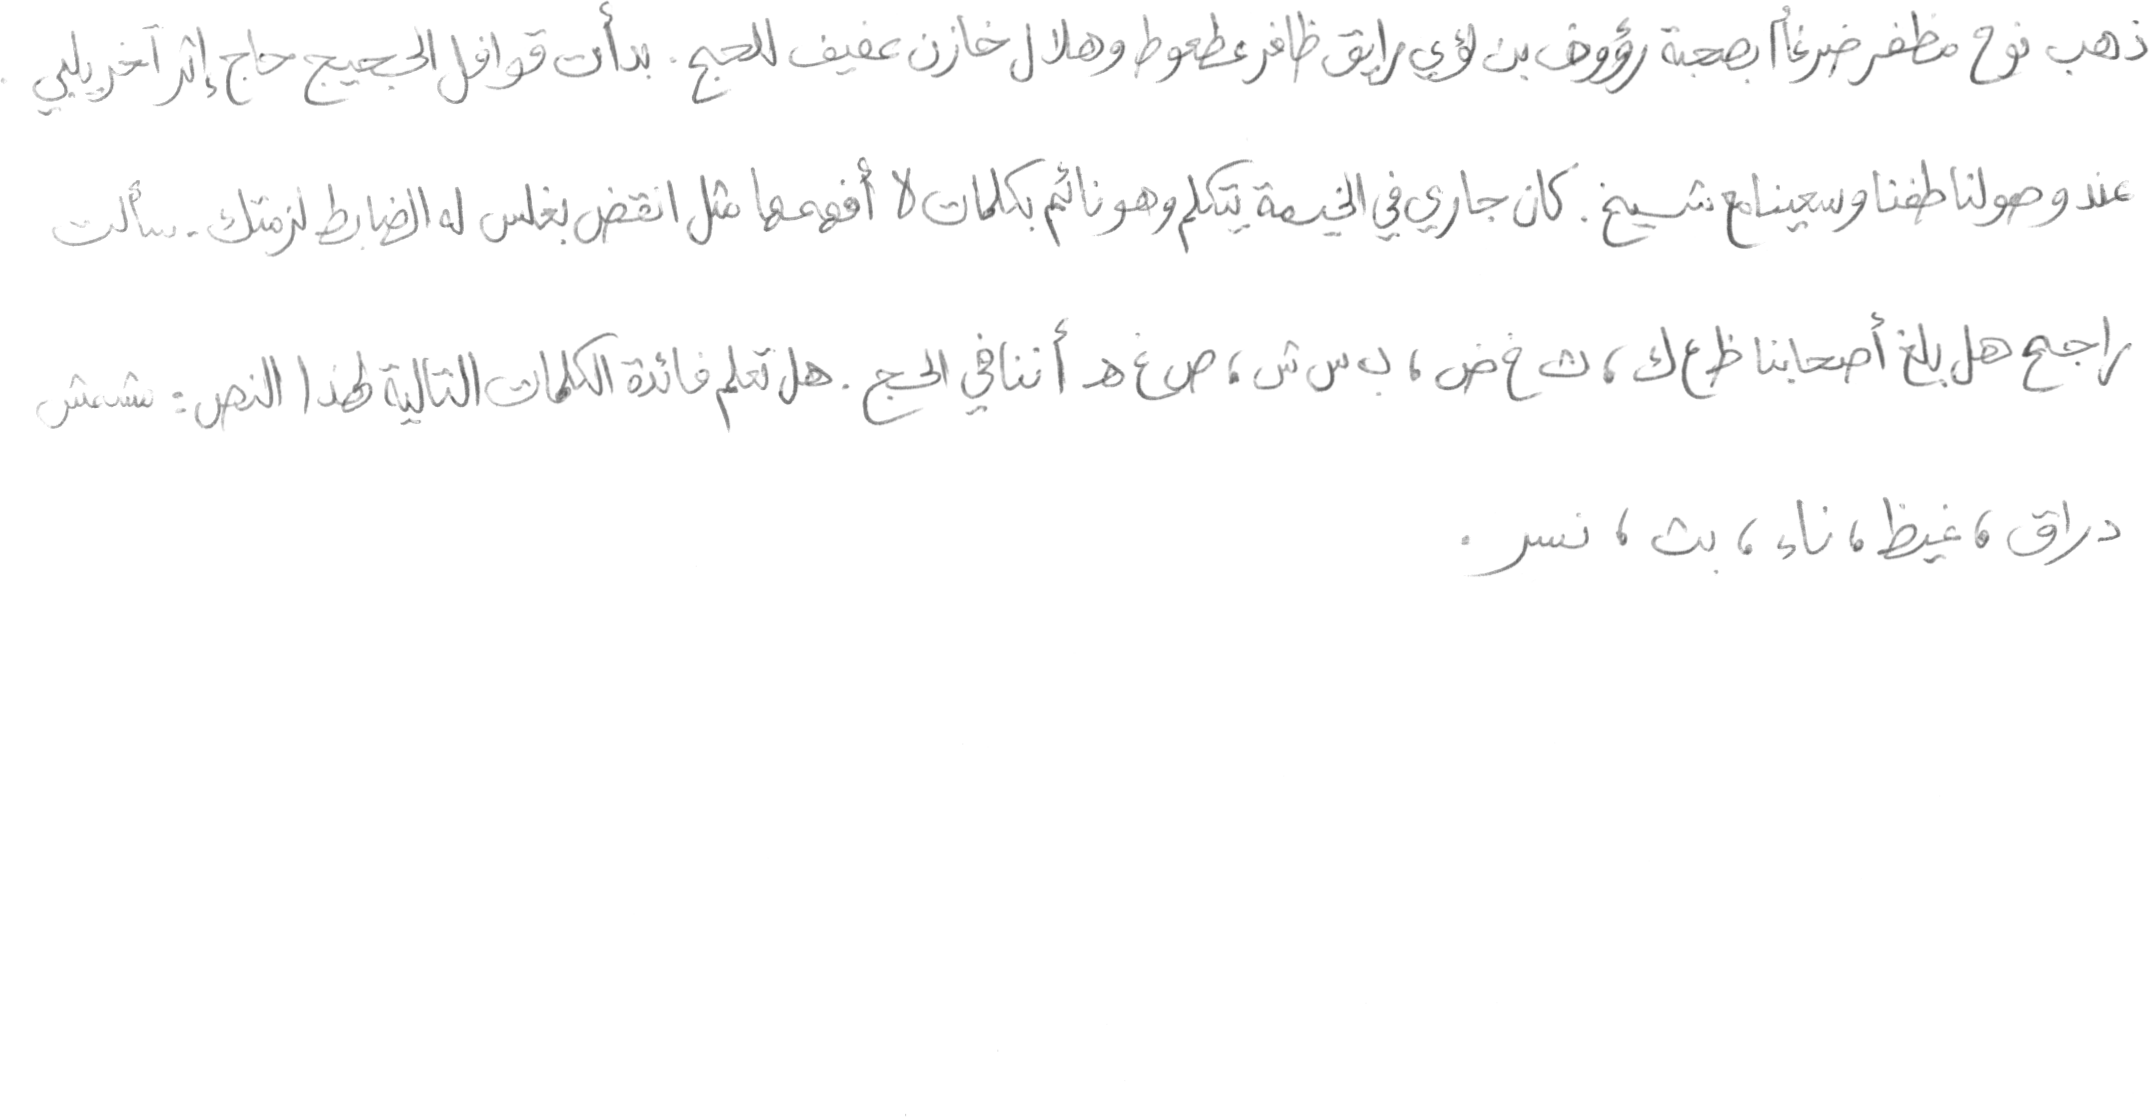 ذهب نوح مظفر ضرغاأ بصحبة رؤوف بن لؤي رايق ظافر عطعوط وهلال خازن عفيف للحج . بدأت قوافل الحجيج حاج إثر آخر يلبي
عند وصولنا طفنا وسعينا مع شيخ . كان جاري في الخيمة يتكلم وهو نائم بكلمات لا أفهمها مثل انقض بغلس له الضابط لزمتك . سألت
راجح هل بلغ أصحابنا ظ ع ك ، ث خ ض ، ب س ش ، ص غ هـ أننا في الحج . هل تعلم فائدة الكلمات التالية لهذا النص : مشمش
دراق ، غيظ ، ناء ، بث ، نسر .